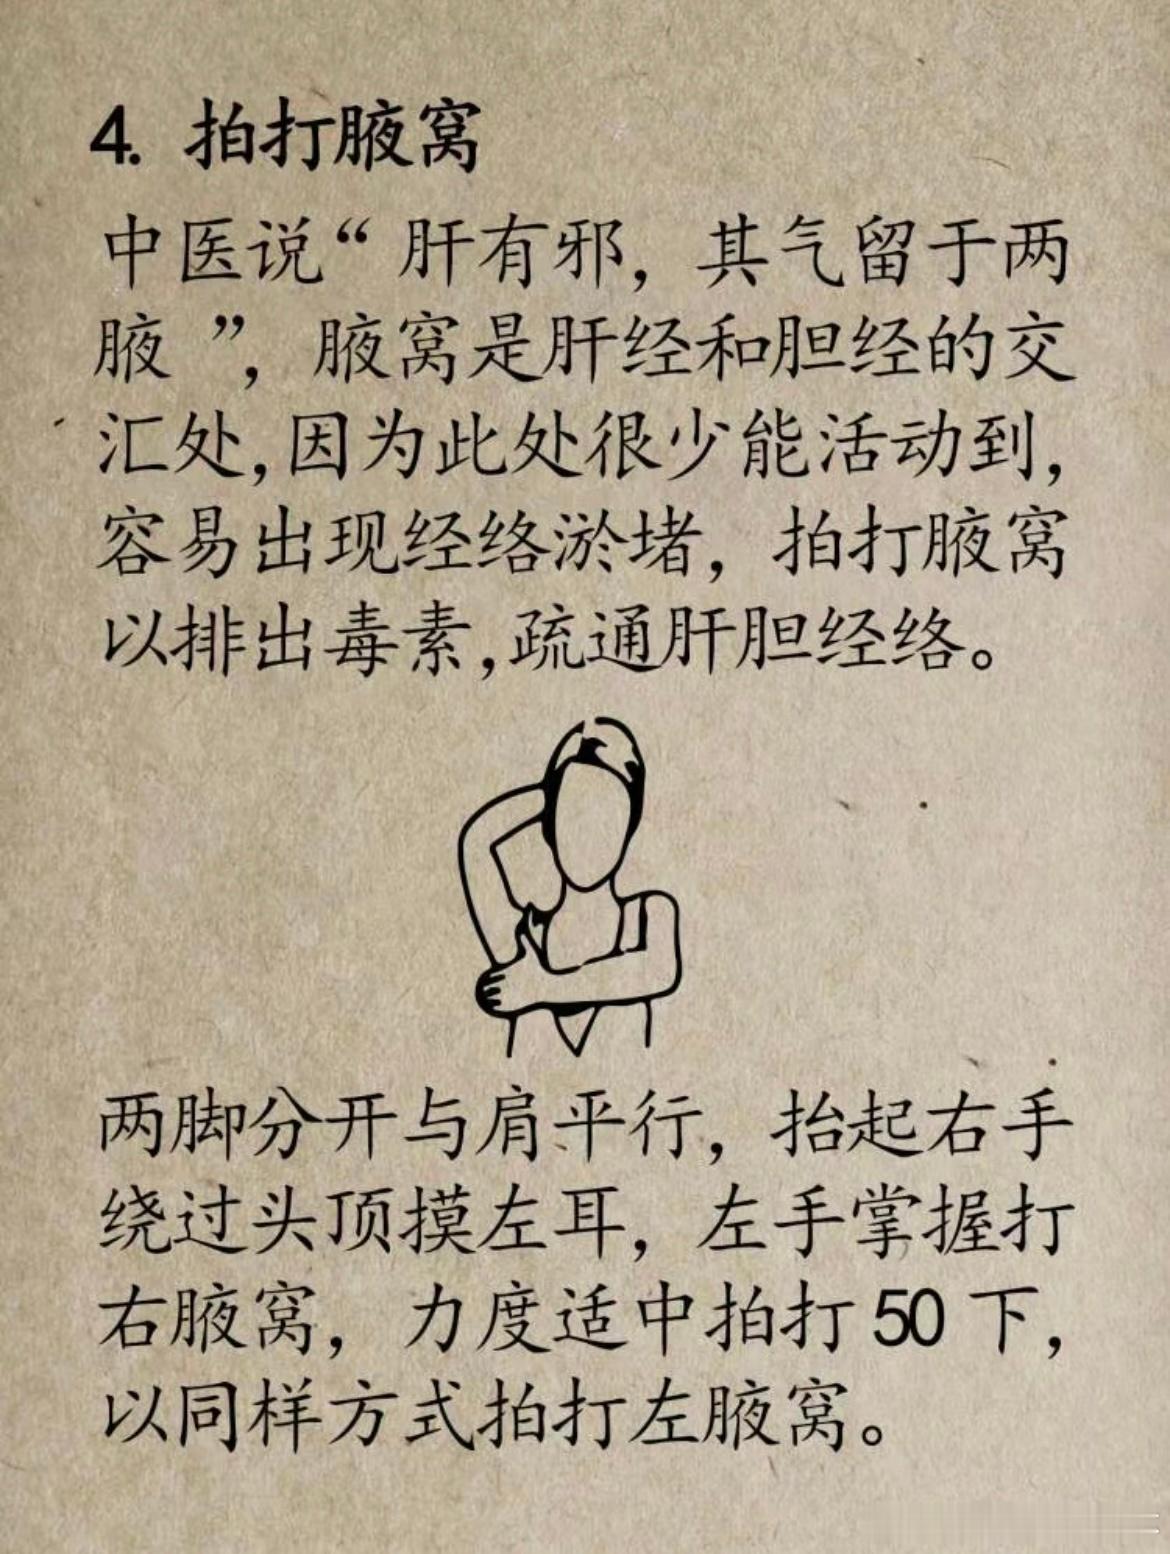 4. 拍打腋窝
中医说“肝有邪，其气留于两
腋”，腋窝是肝经和胆经的交
汇处,因为此处很少能活动到,
容易出现经络淤堵，拍打腋窝
以排出毒素,疏通肝胆经络。
两脚分开与肩平行，抬起右手
绕过头顶摸左耳，左手掌握打
右腋窝，力度适中拍打 50 下，
以同样方式拍打左腋窝。